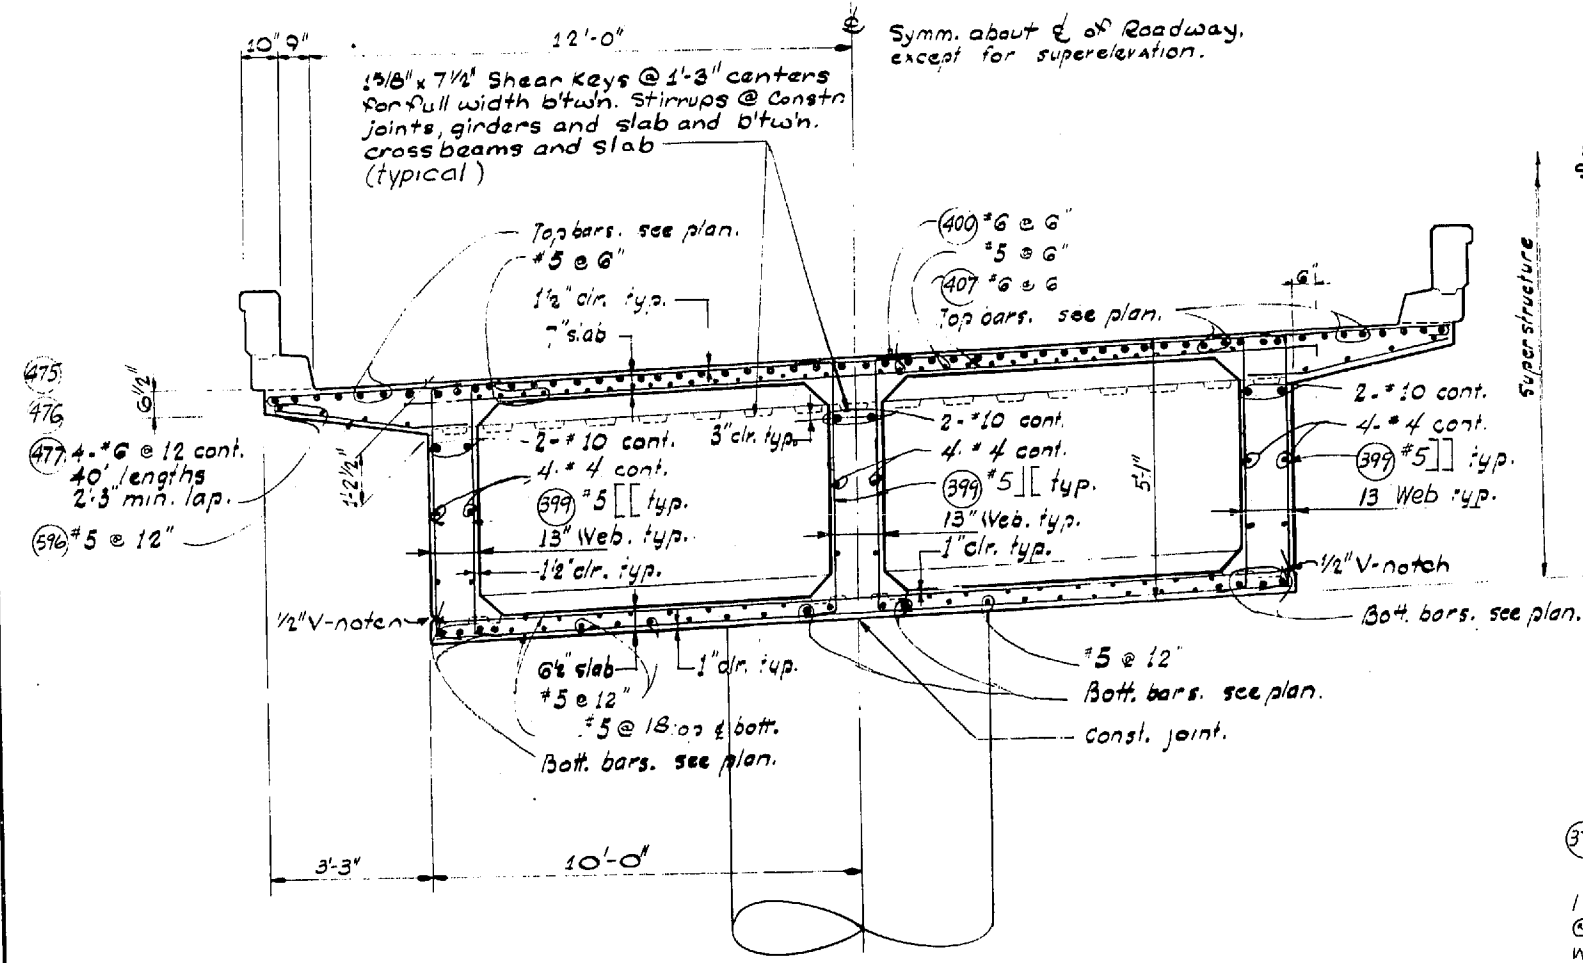 10" 9"
12'-0"
℄
Symm. about ℄ of Roadway,
except for superelevation.
1 5/8" x 7 1/2" Shear Keys @ 1'-3" centers
for full width b'tw'n. Stirrups @ Constr
joints, girders and slab and b'tw'n.
cross beams and slab
(typical)
Top bars. see plan.
#5 @ 6"
1 1/2" clr. typ.
7" slab
400 #6 @ 6"
#5 @ 6"
407 #6 @ 6
Top bars. see plan.
6"
Superstructure
475
476
477 4-#6 @ 12 cont.
40' lengths
2'-3" min. lap.
596 #5 @ 12"
2-#10 cont.
4-#4 cont.
399 #5 [[ typ.
13" Web. typ.
1 1/2" clr. typ.
3" clr. typ.
2-#10 cont.
4-#4 cont.
399 #5 ][ typ.
13" Web. typ.
1" clr. typ.
5'-1"
2-#10 cont.
4-#4 cont.
399 #5 ]] typ.
13 Web typ.
1/2" V-notch
Bott. bars. see plan.
1/2" V-notch
6 1/2" slab
1" clr. typ.
#5 @ 12"
#5 @ 18 & bott.
Bott. bars. see plan.
#5 @ 12"
Bott. bars. see plan.
Const. joint.
3'-3"
10'-0"